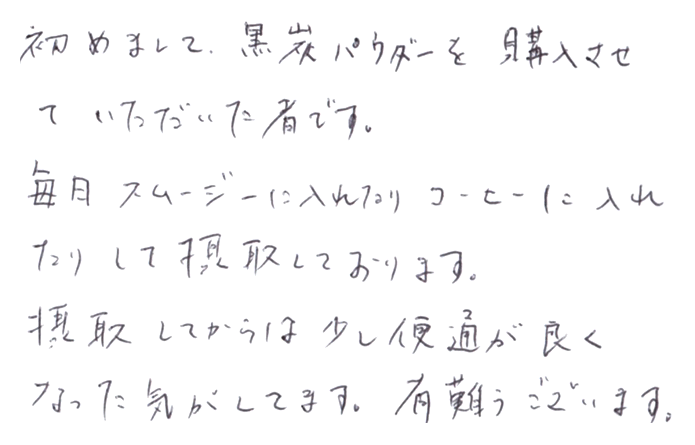 初めまして、黒炭パウダーを購入させ
ていただいた者です。
毎日スムージーに入れたりコーヒーに入れ
たりして摂取しております。
摂取してからは少し便通が良く
なった気がしてます。有難うございます。